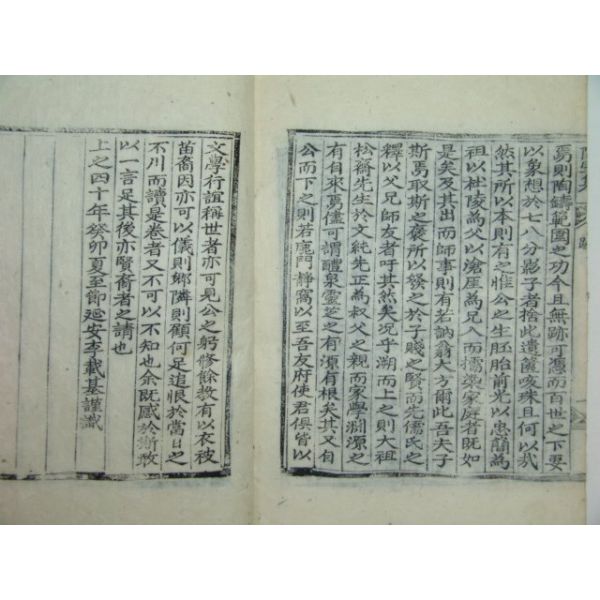 焉則陶鑄範圍之功今且無跡可憑而百世之下要
以象想於七八分影子者捨此遺篇咳珠且何以哉
然其所以本則有之惟公之生胚胎前光以忠簡爲
祖以杜陵爲父以滄厓爲兄入而擩染家庭者旣如
是矣及其出而師事則有若訥翁大方爾此吾夫子
斯焉取斯之褒所以發之於子賤之賢而先儒氏之
釋以父兄師友者吁其然矣况乎溯而上之則大祖
松齋先生於文純先正爲叔父之親而家學淵源之
有自來焉儘可謂醴泉靈芝之有源有根矣其又自
公而下之則若鹿門靜窩以至吾友府使君俱皆以
文學行誼稱世者亦可見公之躬修餘敎有以衣被
苗裔因亦可以儀則鄕隣則顧何足追恨於當日之
不川而讀是卷者又不可以不知也余旣感於斯敢
以一言足其後亦賢裔者之請也
上之四十年癸卯夏至節延安李載基謹識